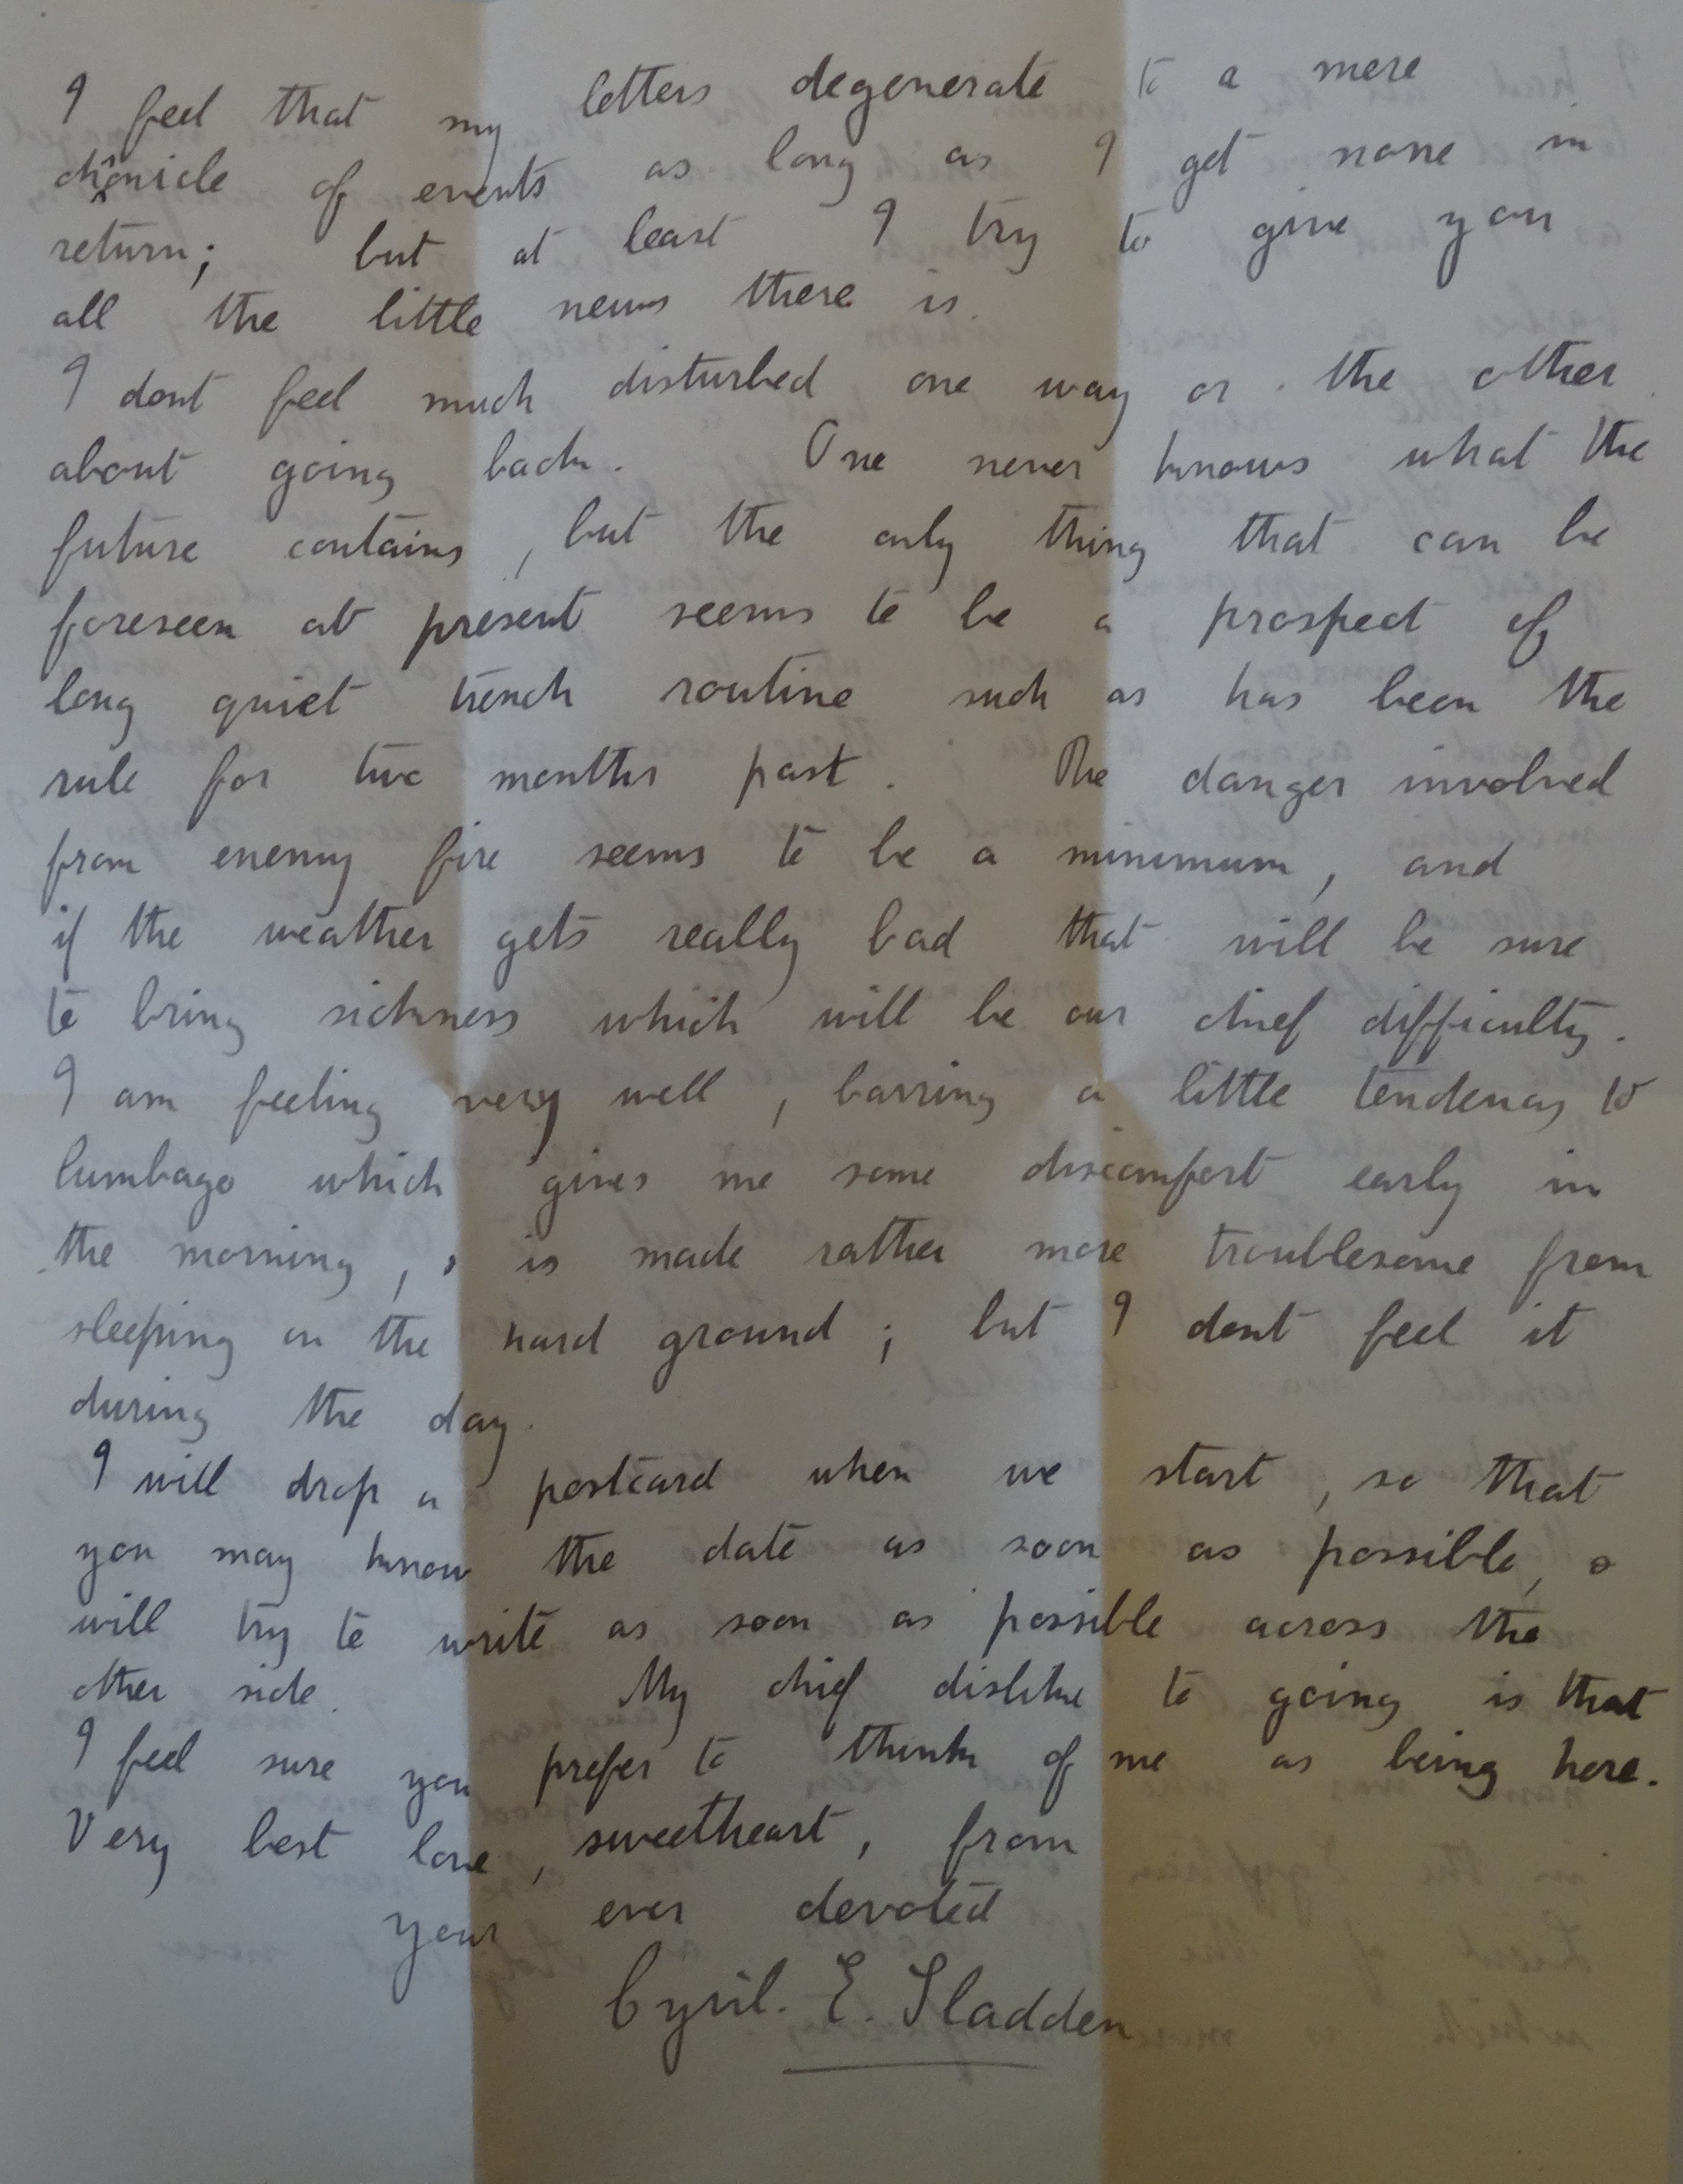 I feel that my letters degenerate to a mere
chronicle of events as long as I get none in
return; but at least I try to give you
all the little news there is.
I dont feel much disturbed one way or the other
about going back. One never knows what the
future contains, but the only thing that can be
foreseen at present seems to be a prospect of
long quiet trench routine such as has been the
rule for two months past. The danger involved
from enemy fire seems to be a minimum, and
if the weather gets really bad that will be sure
to bring sickness which will be our chief difficulty.
I am feeling very well, barring a little tendency to
lumbago which gives me some discomfort early in
the morning, & is made rather more troublesome from
sleeping on the hard ground; but I dont feel it
during the day.
I will drop a postcard when we start, so that
you may know the date as soon as possible, &
will try to write as soon as possible across the
other side. My chief dislike to going is that
I feel sure you prefer to think of me as being here.
Very best love, sweetheart, from
your ever devoted
Cyril. E. Sladden